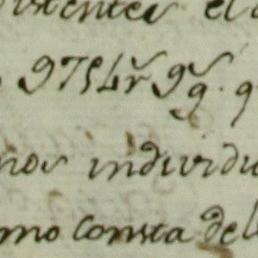 istentes el
9754r 9g. q
nos individu
mo consta del